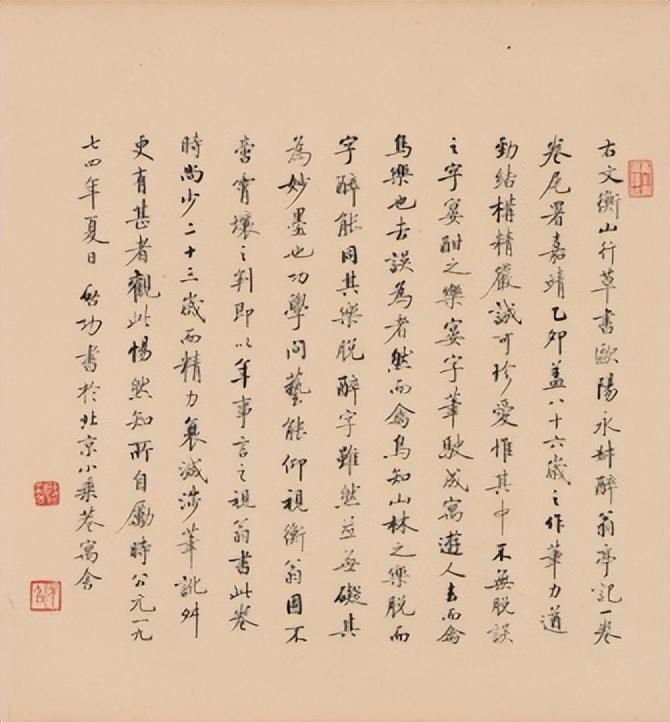 右文衡山行草書歐陽永叔醉翁亭記一卷
卷尾署嘉靖乙卯蓋八十六歲之作筆力遒
勁結構精嚴誠可珍愛惟其中不無脫誤
之字宴酣之樂宴字筆駛成寓遊人去而禽
鳥樂也去誤為者然而禽鳥知山林之樂脫而
字醉能同其樂脫醉字雖然並無礙其
為妙墨也功學問藝能仰視衡翁固不
啻霄壤之判即以年事言之視翁書此卷
時尚少二十三歲而精力衰減涉筆訛舛
更有甚者觀此惕然知所自勵時公元一九
七四年夏日 啟功書於北京小乘巷寓舍